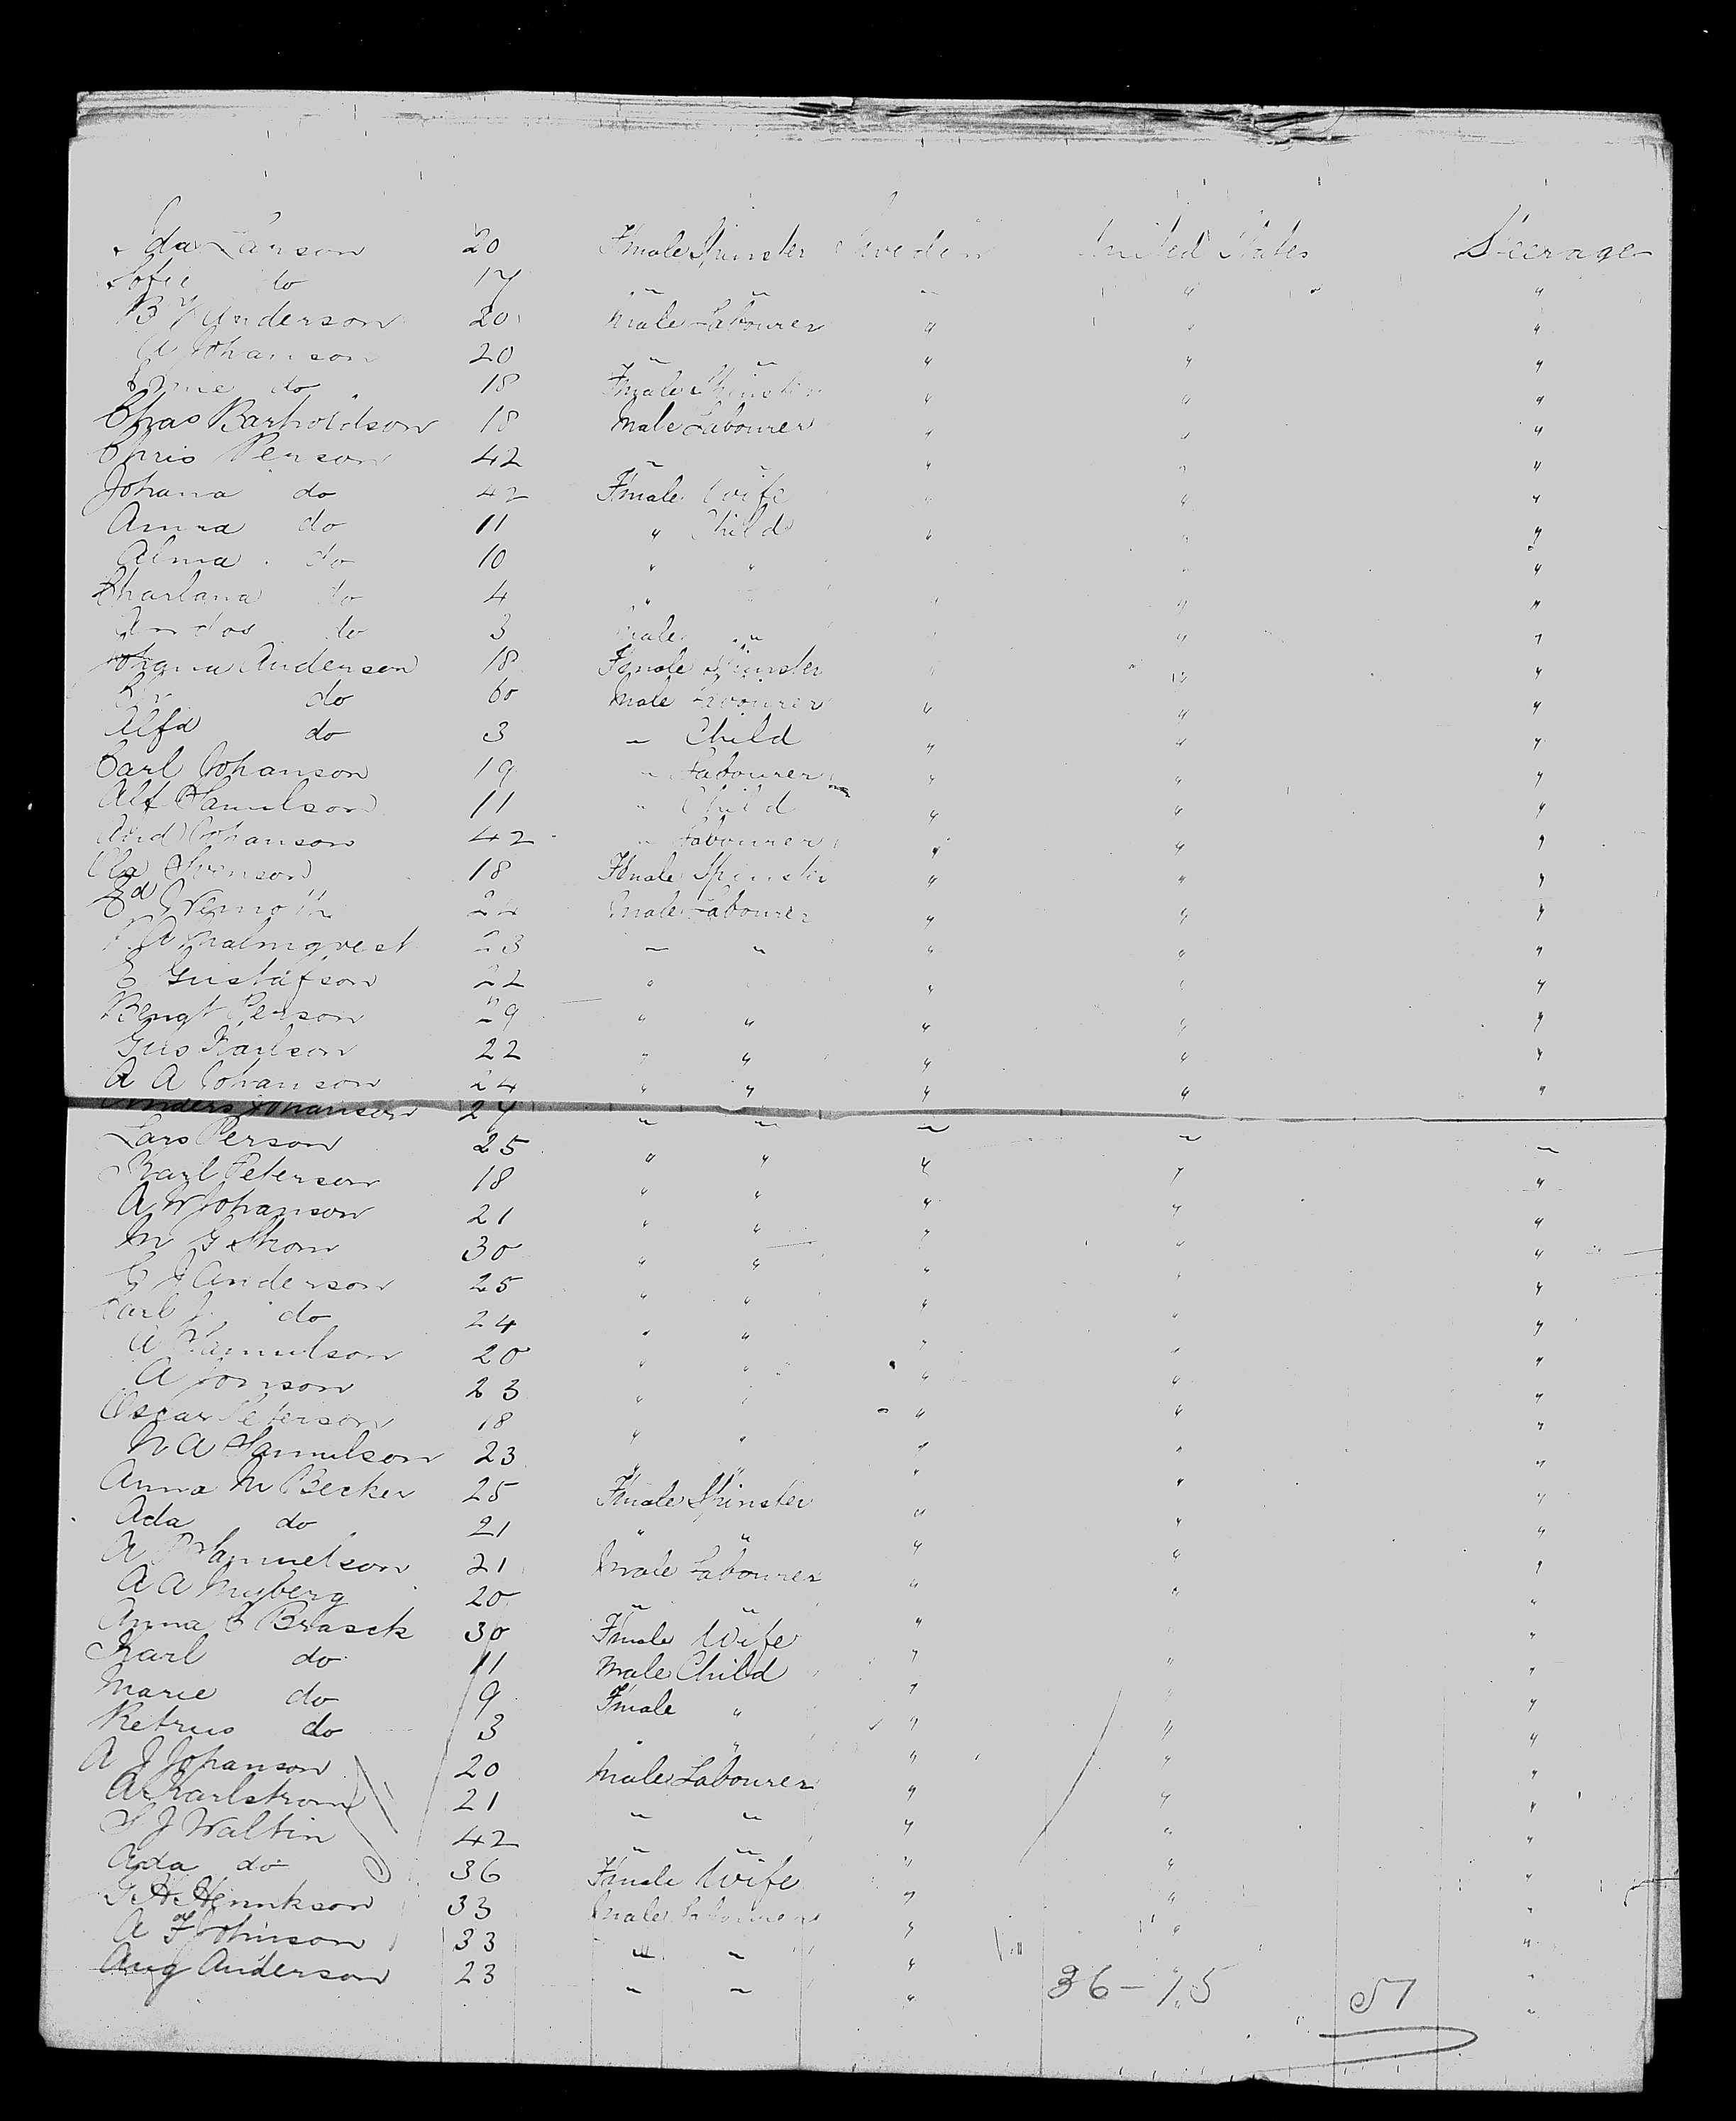 Ida Larson 20 Fmale Spinster Sweden United States Steerage
Sofie do 17 " " " " "
B Anderson 20 Male Labourer " " "
A Johanson 20 " " " " "
do 18 Fmale Spinster " " "
Chas Bartholdson 18 Male Labourer " " "
Chris Person 42 " " " " "
Johana do 42 Fmale Wife " " "
Anna do 11 " Child " " "
Alma do 10 " " " "
Charlana do 4 " " " "
do 3 Male " " "
Johana Anderson 18 Fmale Spinster " " "
do 60 Male Labourer " " "
Alfd do 3 " Child " " "
Carl Johanson 19 " Labourer " " "
Alf Samulson 11 " Child " " "
And Johanson 42 " Labourer " " "
Ola Svenson 18 Fmale Spinster " " "
Ed Male Labourer " " "
A Malmqvest 23 " " " " "
E Gustafson 22 " " " "
Bengt Person 29 " " " " "
Gus Karlson 22 " " " " "
A A Johanson 24 " " " " "
Anders Johanson 24 " " " " "
Lars Person 25 " " " " "
Karl Peterson 18 " " " " "
A W Johanson 21 " " " " "
M G Strom 30 " " " " "
C J Anderson 25 " " " " "
Carl J. do 24 " " " " "
A Samulson 20 " " " " "
A Jonson 23 " " " " "
Oscar Peterson 18 " " " " "
N A Samulson 23 " " " " "
Anna M Becker 25 Fmale Spinster " " "
Ada do 21 " " " " "
A Samuelson 21 Male Labourer " " "
A A Myberg 20 " " " " "
Anna C Brasck 30 Fmale Wife " " "
Karl do 11 Male Child " " "
Marie do 9 Fmale " " " "
Petrus do 3 " " " "
A J Johanson 20 Male Labourer " " "
A Karlstrom 21 " " " " "
S J Waltin 42 " " " " "
Ada do 36 Fmale Wife " " "
G H Henrikson 33 Male Labourer " " "
A Johnson 33 " " " " "
Aug Anderson 23 " " " "
36 - 15 51